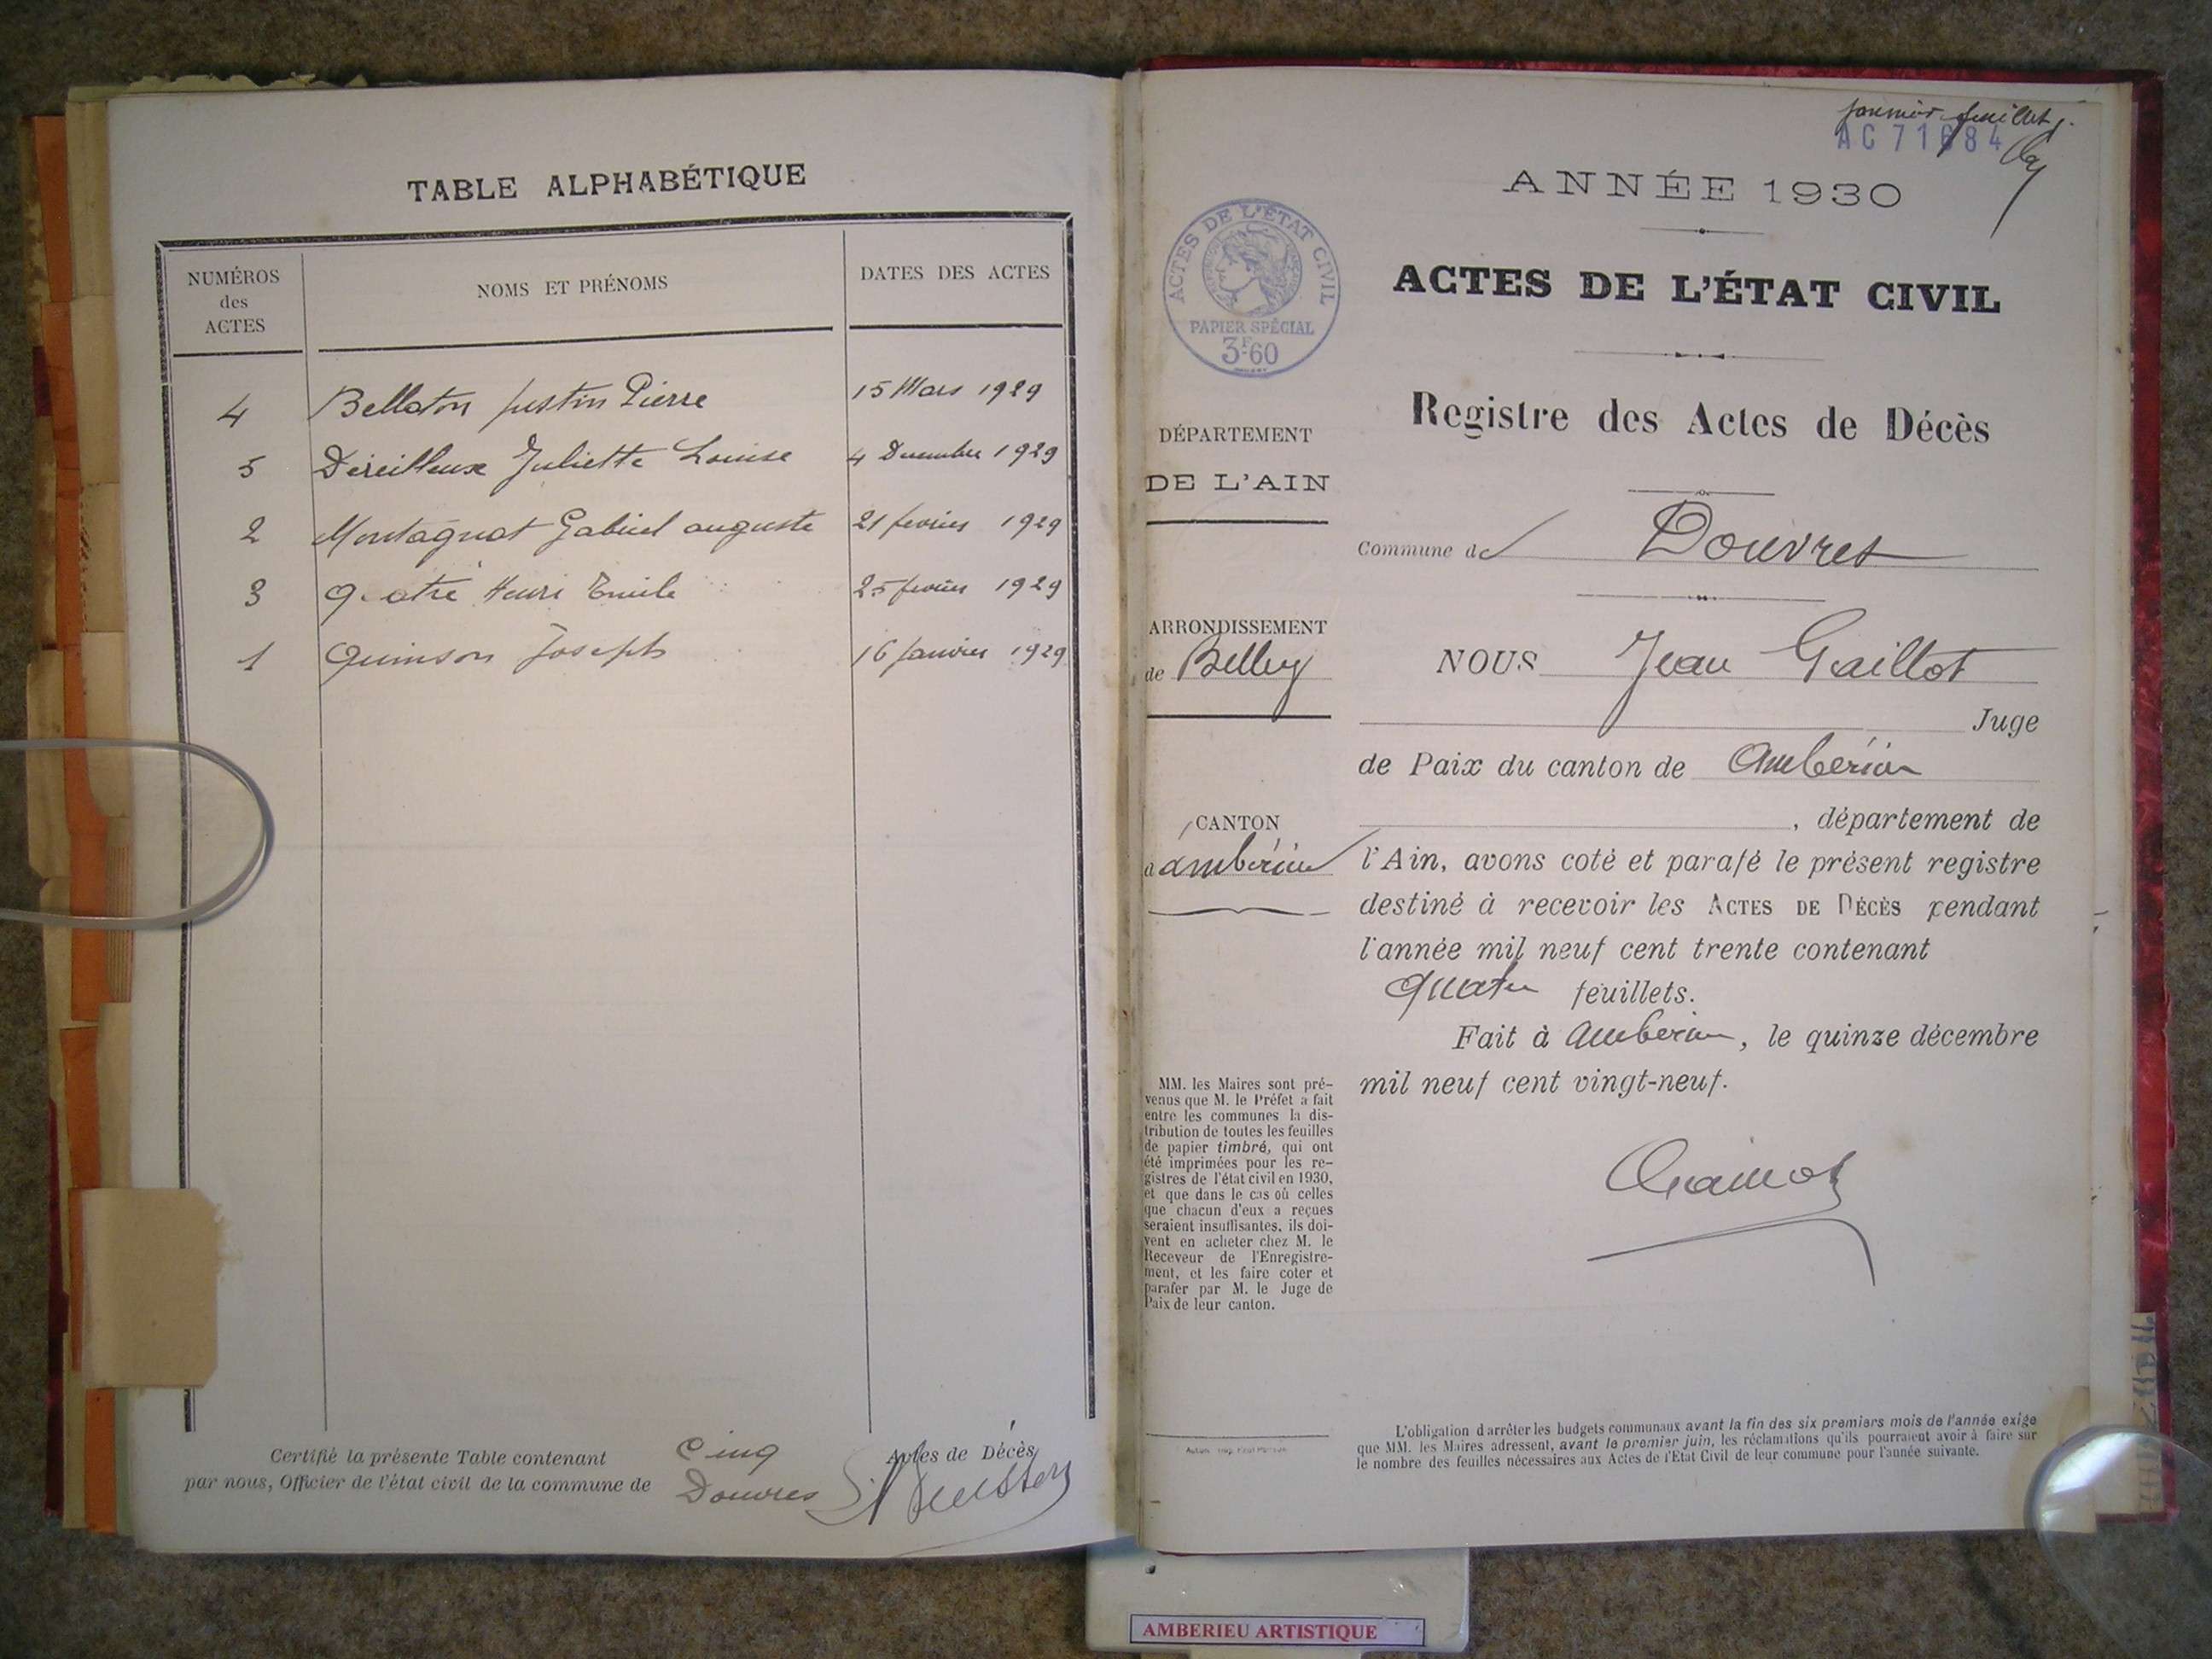 TABLE ALPHABÉTIQUE
NUMÉROS des ACTES
NOMS ET PRÉNOMS
DATES DES ACTES
4 Bellaton Justin Pierre 15 Mars 1929
5 Juliette Louise 4 Decembre 1929
2 Montagnat Gabriel auguste 21 fevrier 1929
3 Henri Emile 25 fevrier 1929
1 Quinson Joseph 16 Janvier 1929
Certifié la présente Table contenant Cinq Actes de Décès
par nous, Officier de l'état civil de la commune de Douvres
premier feuillet
AC 71684
ANNÉE 1930
ACTES DE L'ÉTAT CIVIL
PAPIER SPÉCIAL
3F60
ACTES DE L'ÉTAT CIVIL
Registre des Actes de Décès
DÉPARTEMENT
DE L'AIN
Commune de Douvres
ARRONDISSEMENT
de Belley
NOUS Jean Gaillot
Juge
de Paix du canton de Ambérieu
CANTON
d'ambérieu
, département de
l'Ain, avons coté et parafé le présent registre
destiné à recevoir les ACTES DE DÉCÈS pendant
l'année mil neuf cent trente contenant
quatre feuillets.
Fait à Amberieu, le quinze décembre
mil neuf cent vingt-neuf.
MM. les Maires sont pré-
venus que M. le Préfet a fait
entre les communes la dis-
tribution de toutes les feuilles
de papier timbré, qui ont
été imprimées pour les re-
gistres de l'état civil en 1930,
et que dans le cas où celles
que chacun d'eux a reçues
seraient insuffisantes, ils doi-
vent en acheter chez M. le
Receveur de l'Enregistre-
ment, et les faire coter et
parafer par M. le Juge de
Paix de leur canton.
L'obligation d'arrêter les budgets communaux avant la fin des six premiers mois de l'année exige
que MM. les Maires adressent, avant le premier juin, les réclamations qu'ils pourraient avoir à faire sur
le nombre des feuilles nécessaires aux Actes de l'Etat Civil de leur commune pour l'année suivante.
AMBERIEU ARTISTIQUE